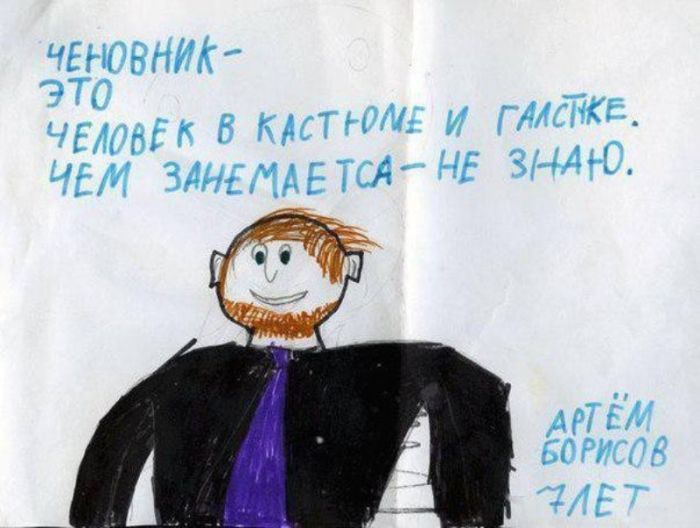 ЧЕНОВНИК-
ЭТО
ЧЕЛОВЕК В КАСТЮМЕ И ГАЛСТКЕ.
ЧЕМ ЗАНЕМАЕТСА - НЕ ЗНАЮ.
АРТЁМ
БОРИСОВ
7 ЛЕТ